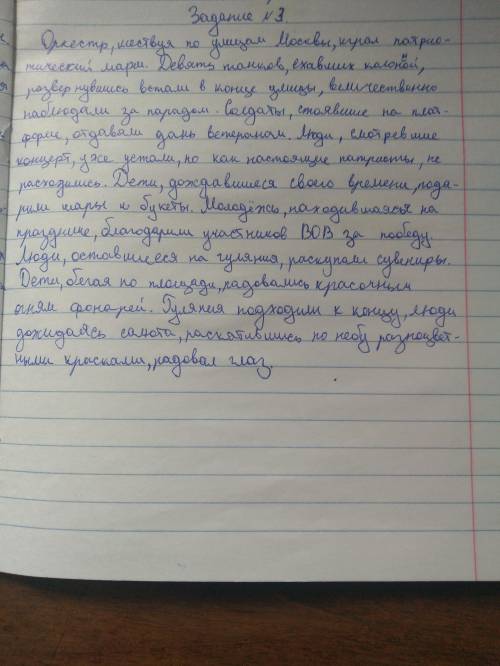 Задание №3.
Оркестр, шествуя по улицам Москвы, играл патрио-
тический марш. Девять танков, ехавших колонной,
развернувшись встали в конце улицы, величественно
наблюдали за парадом. Солдаты, стоявшие на плат-
форме, отдавали дань ветеранам. Люди, смотревшие
концерт, уже устали, но как настоящие патриоты, не
расходились. Дети, дождавшиеся своего времени, пода-
рили шары и букеты. Молодёжь, находившаяся на
празднике, благодарили участников ВОВ за победу.
Люди, оставшиеся на гуляния, раскупали сувениры.
Дети, бегая по площади, радовались красочным
огням фонарей. Гуляния подходили к концу, люди
дожидаясь салюта, раскатившись по небу разноцвет-
ными красками, радовал глаз.